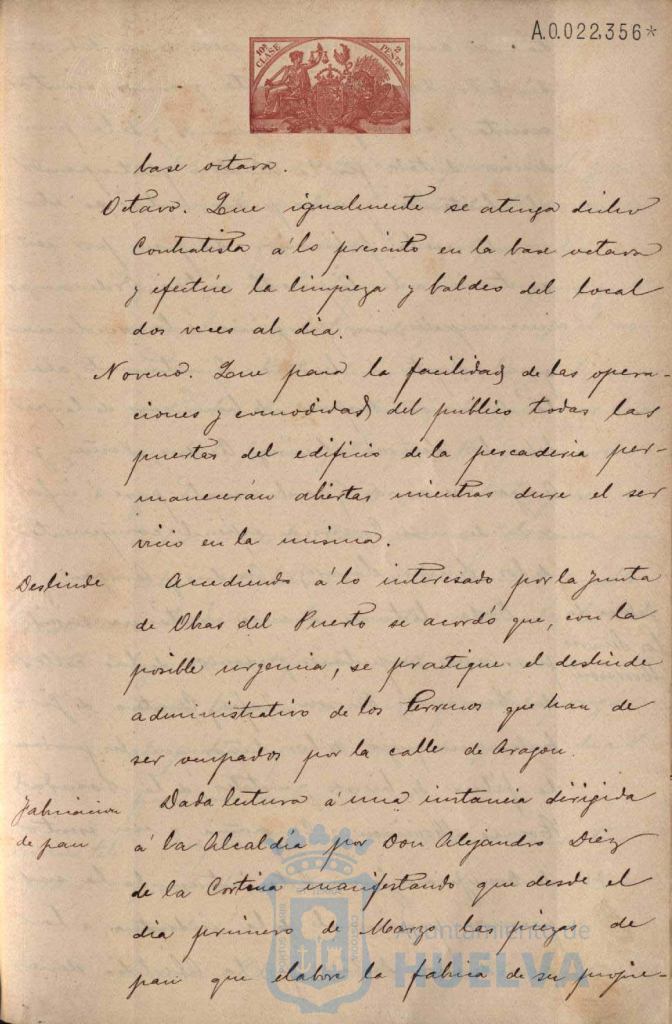 A.0.022,356*
10ª CLASE
2 PESETAS
base octava.
Octavo. Que igualmente se atenga dicho
Contratista á lo prescrito en la base octava
y efectúe la limpieza y baldeo del local
dos veces al dia.
Noveno. Que para la facilidad de las opera-
ciones y comodidad del público todas las
puertas del edificio de la pescadería per-
manecerán abiertas mientras dure el ser
vicio en la misma.
Deslinde
Accediendo á lo interesado por la Junta
de Obras del Puerto se acordó que, con la
posible urgencia, se practique el deslinde
administrativo de los terrenos que han de
ser ocupados por la calle de Aragon.
Fabricacion
de pan
Dada lectura á una instancia dirigida
á la Alcaldía por Don Alejandro Diez
de la Cortina manifestando que desde el
dia primero de Marzo las piezas de
pan que elabore la fábrica de su propie-
Ayuntamiento de
HUELVA